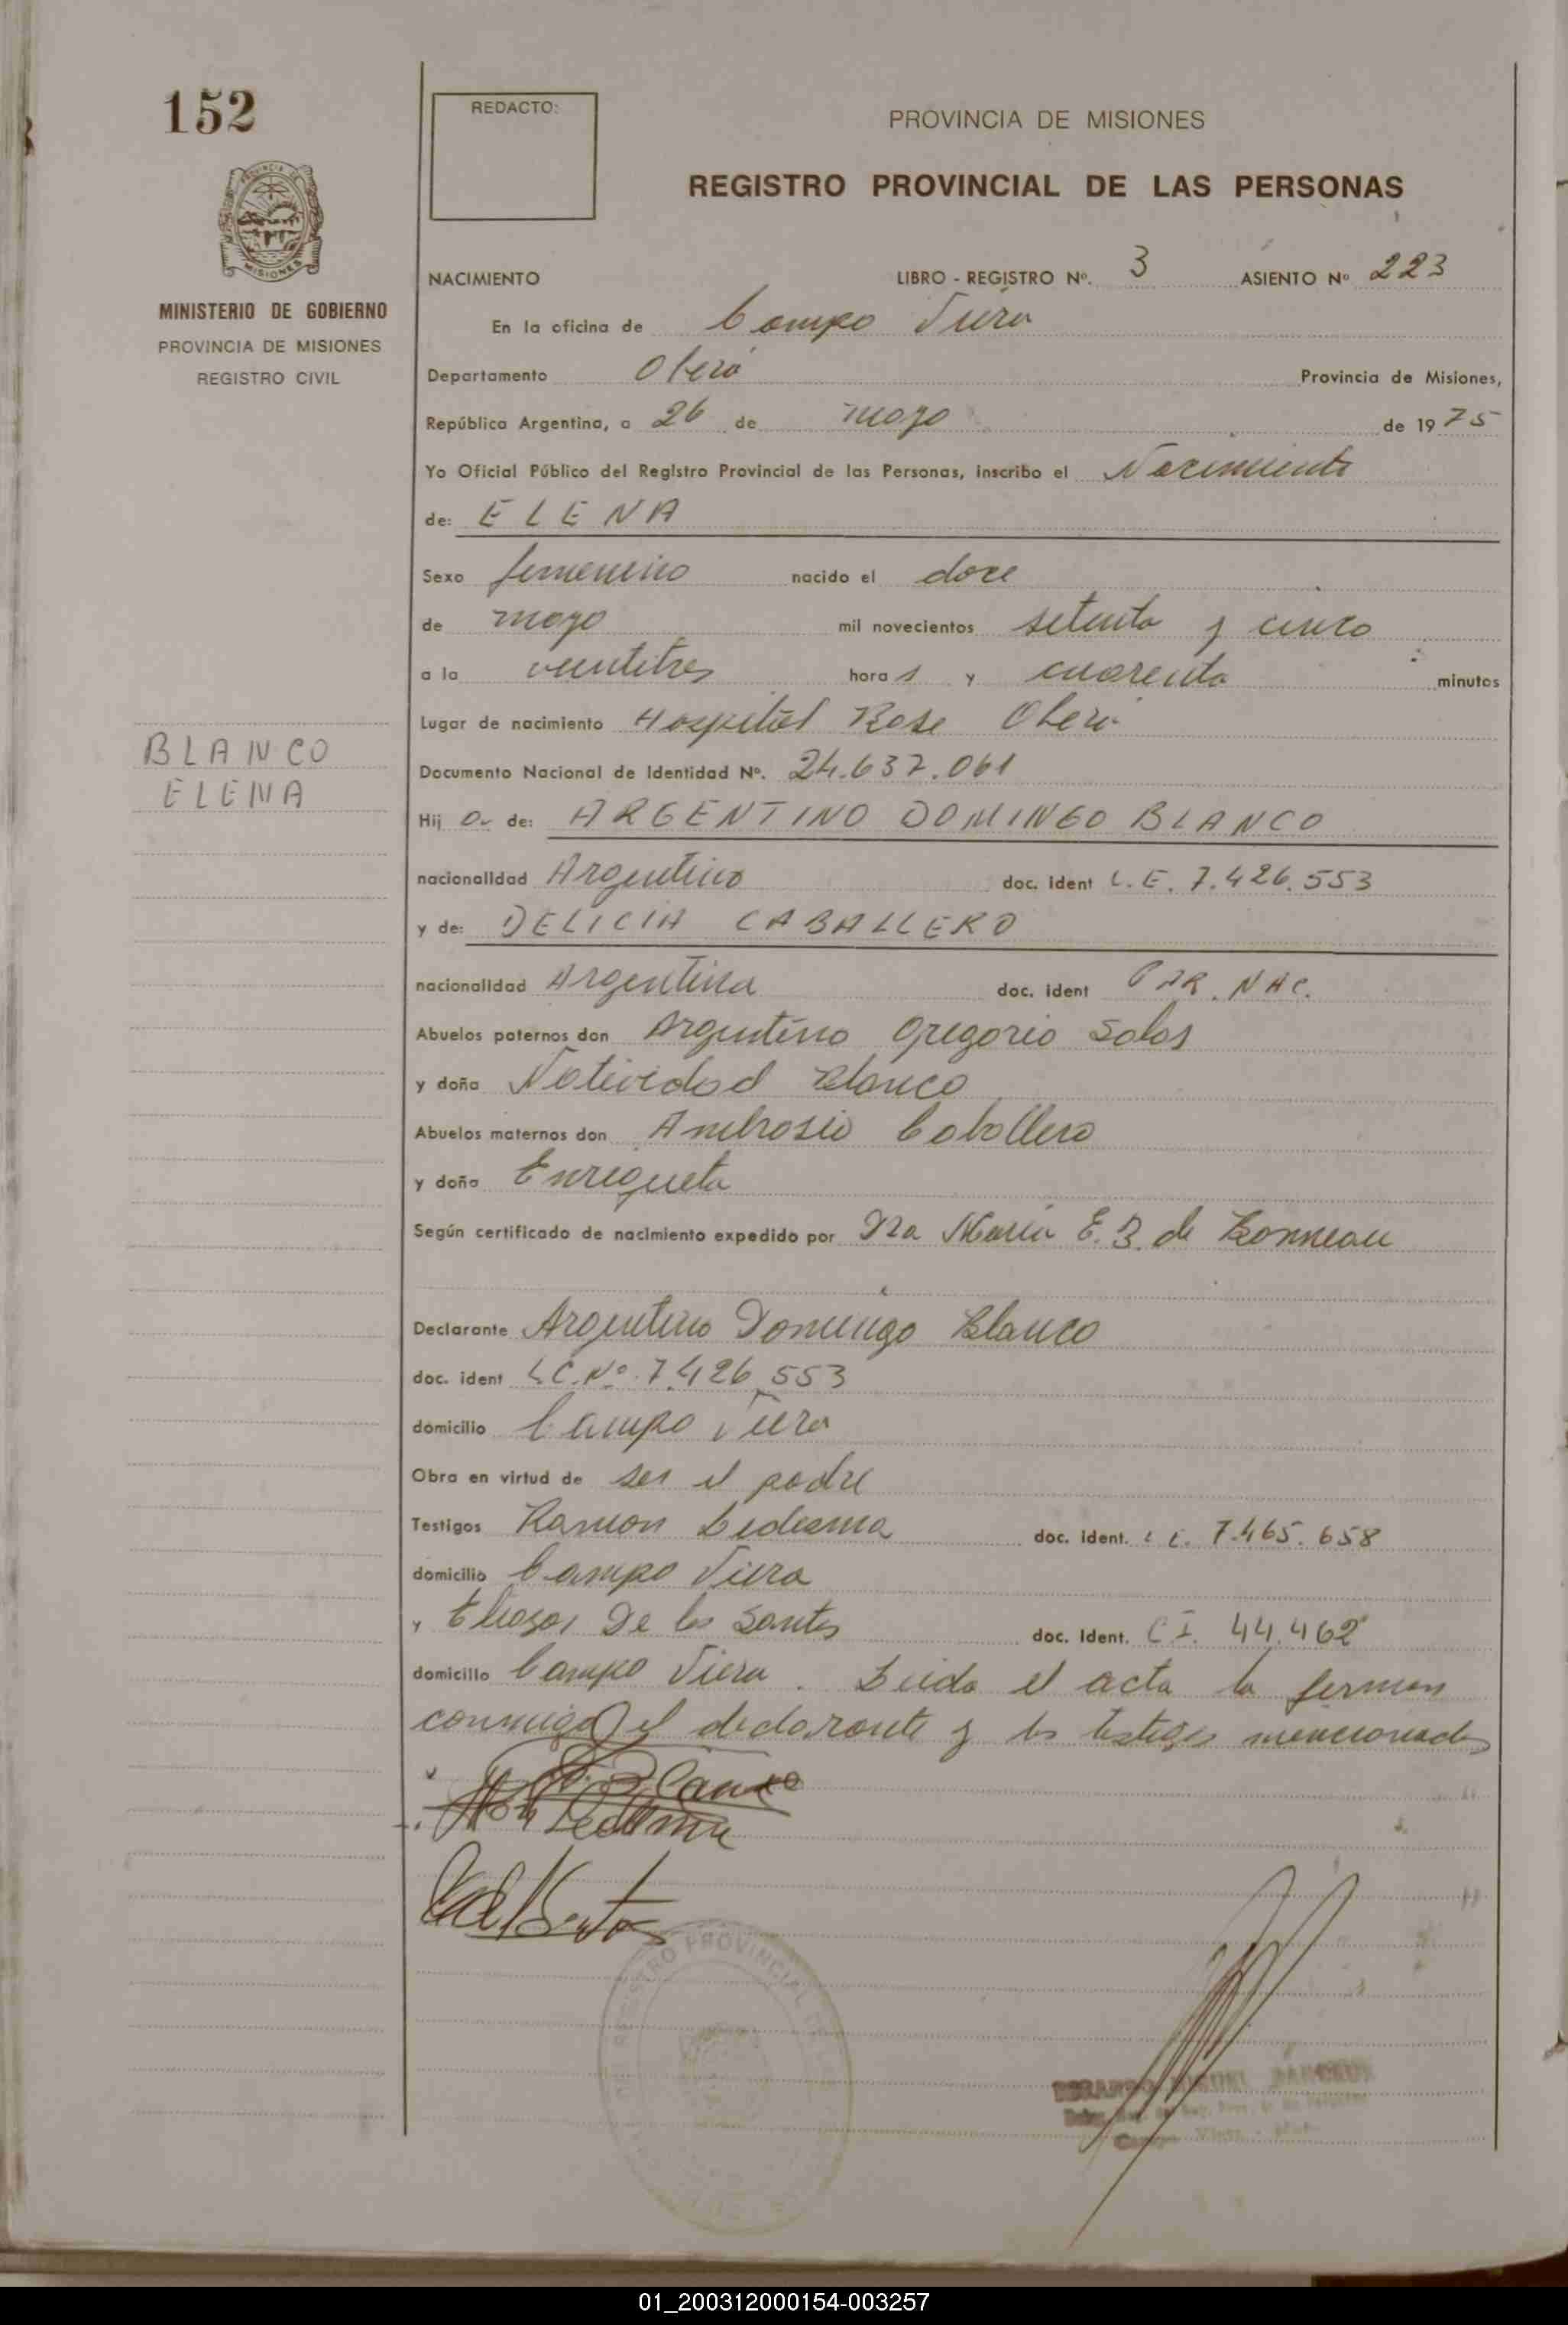 152
REDACTO:
PROVINCIA DE MISIONES
REGISTRO PROVINCIAL DE LAS PERSONAS
PROVINCIA DE
MISIONES
MINISTERIO DE GOBIERNO
PROVINCIA DE MISIONES
REGISTRO CIVIL
NACIMIENTO LIBRO - REGISTRO Nº. 3 ASIENTO Nº 223
En la oficina de Campo Viera
Departamento Oberá Provincia de Misiones,
República Argentina, a 26 de mayo de 1975
Yo Oficial Público del Registro Provincial de las Personas, inscribo el Nacimiento
de: ELENA
Sexo femenino nacido el doce
de mayo mil novecientos setenta y cinco
a la veintitres horas y cuarenta minutos
Lugar de nacimiento Hospital Rose Oberá
BLANCO
ELENA
Documento Nacional de Identidad Nº. 24.637.061
Hija de: ARGENTINO DOMINGO BLANCO
nacionalidad Argentino doc. ident L.E. 7.426.553
y de: DELICIA CABALLERO
nacionalidad Argentina doc. ident PAR. NAC.
Abuelos paternos don Argentino Gregorio Salas
y doña Natividad Blanco
Abuelos maternos don Ambrosio Caballero
y doña Enriqueta
Según certificado de nacimiento expedido por Dra Maria E. B. de Bonneau
Declarante Argentino Domingo Blanco
doc. ident L.E. Nº 7.426.553
domicilio Campo Viera
Obra en virtud de ser el padre
Testigos Ramon Ledesma doc. ident. L.E. 7.465.658
domicilio Campo Viera
y De los Santos doc. Ident. C.I. 44.462
domicilio Campo Viera. Leida el acta la firman
conmigo el declarante y los testigos mencionados
Blanco
Ledesma
Santos
REGISTRO PROVINCIAL DE
MIGUEL
Campo Viera
01_200312000154-003257